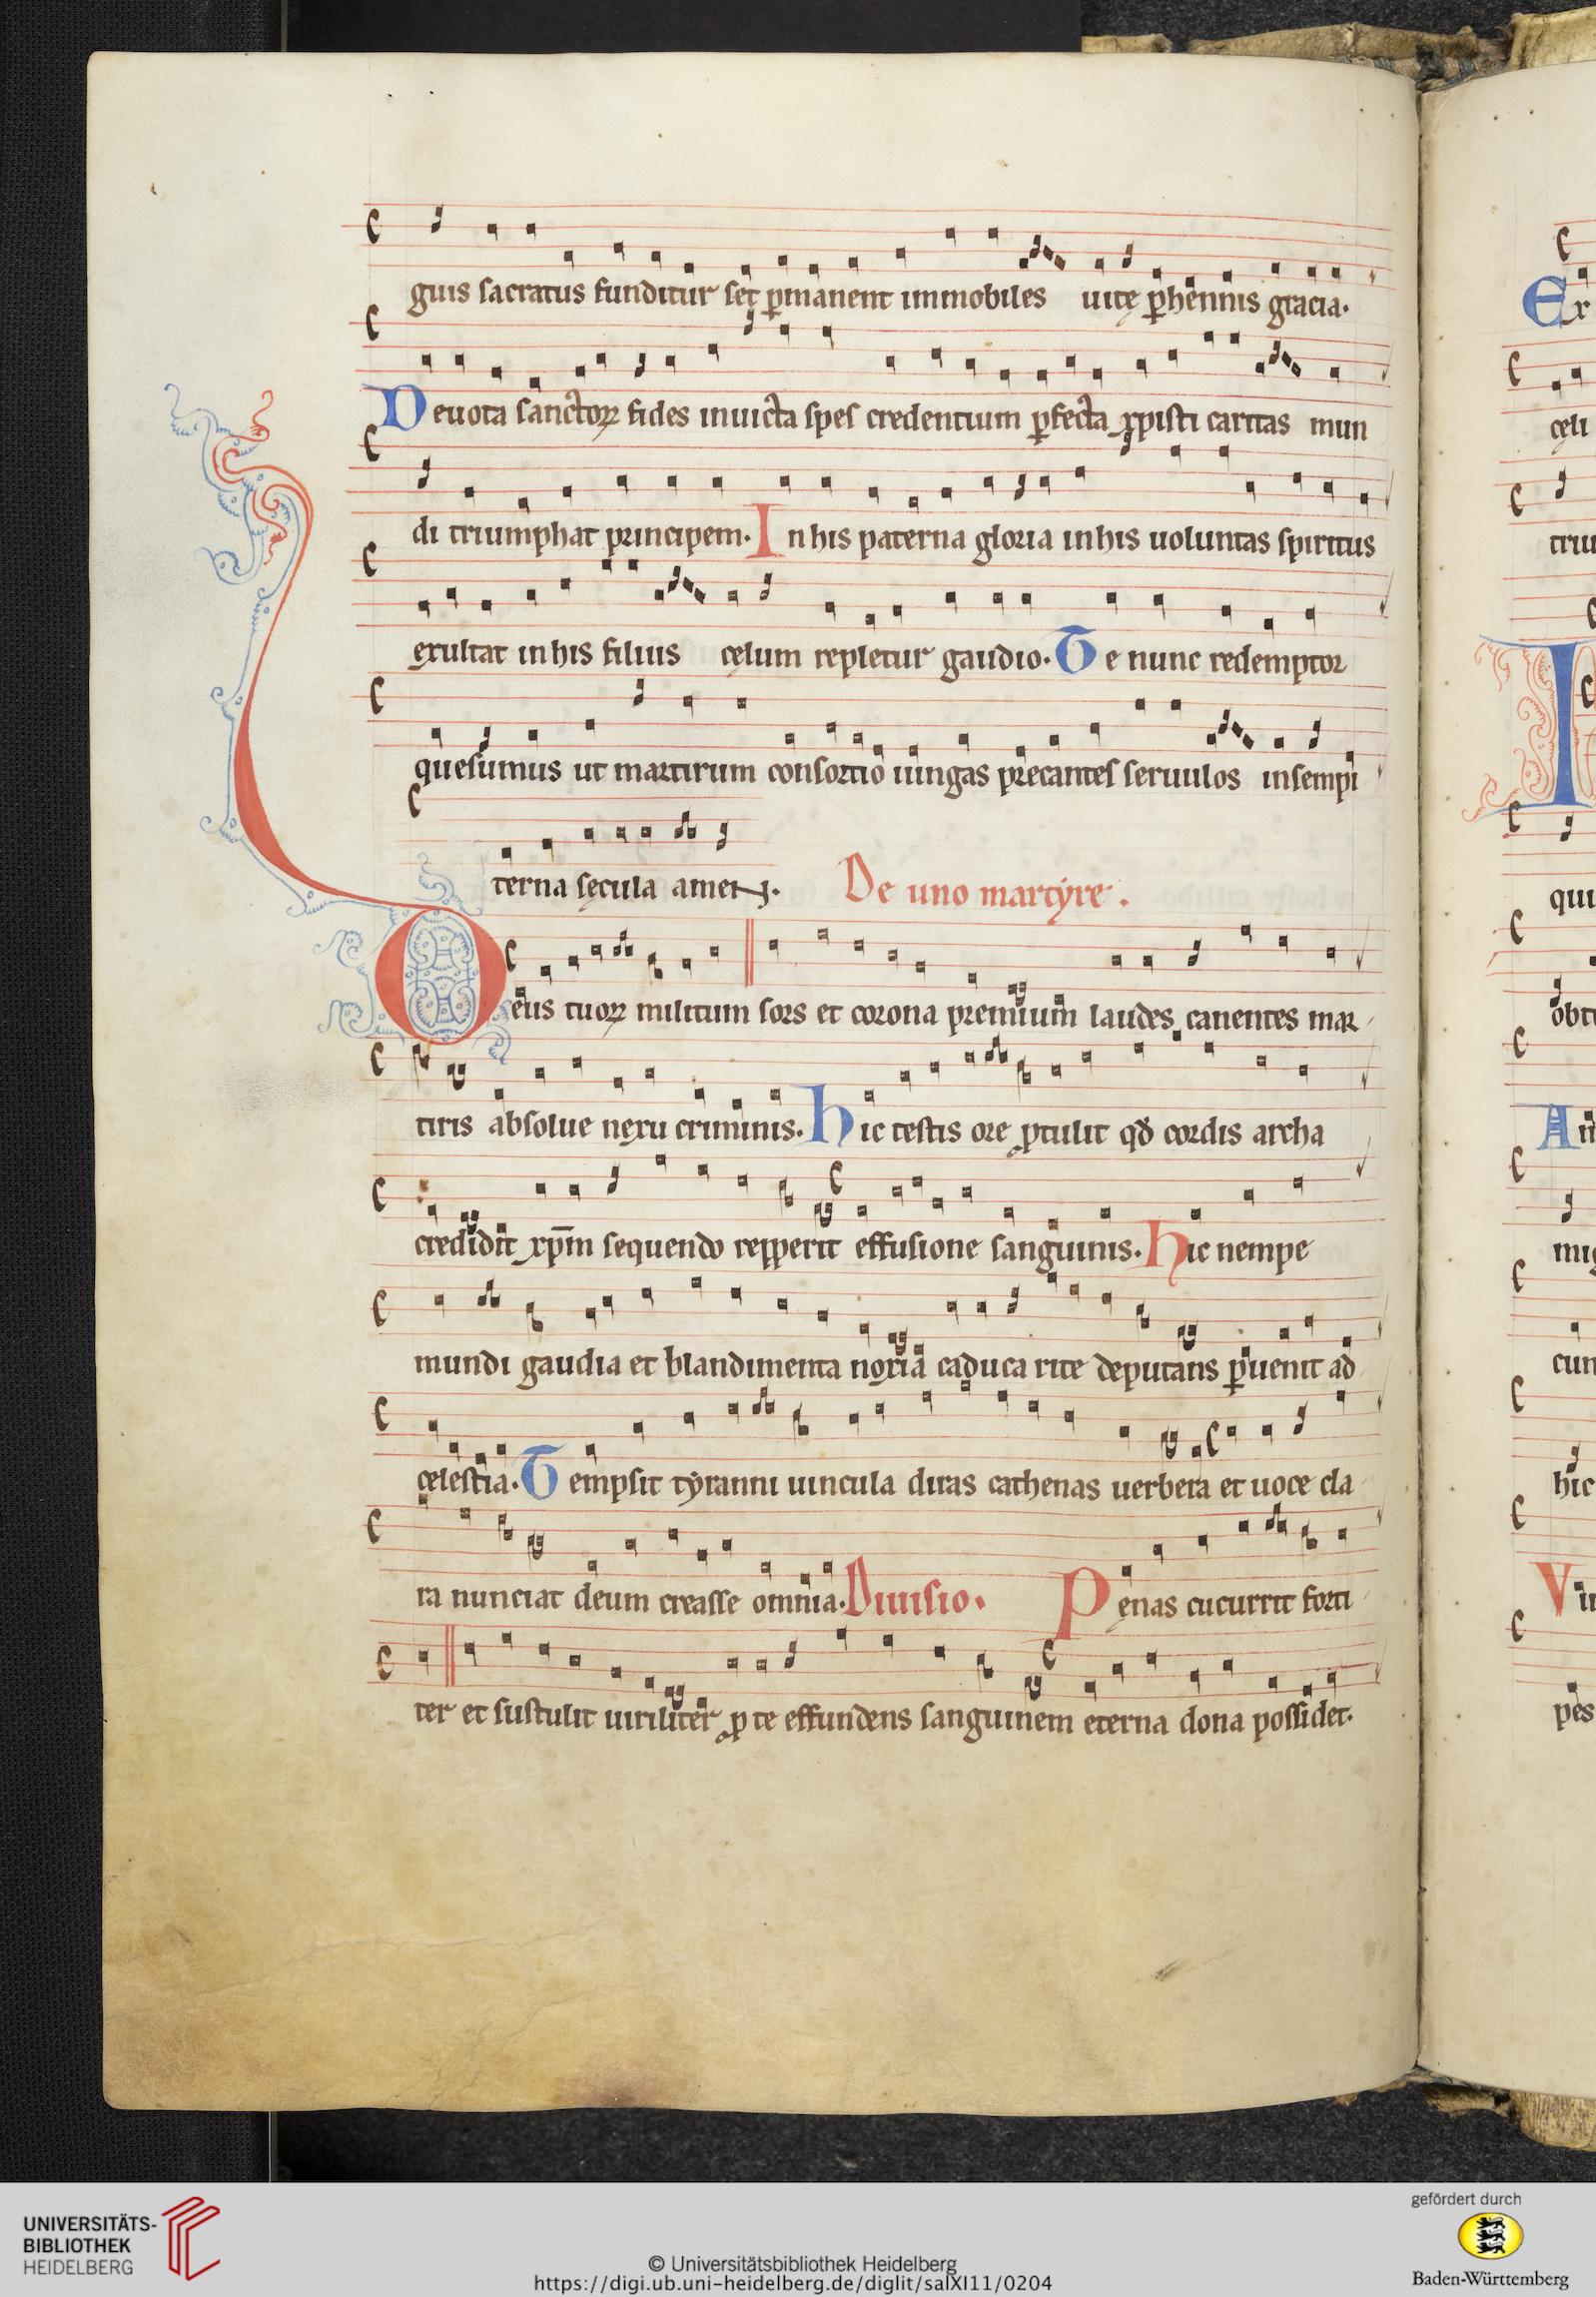 guis sacratus funditur set ꝑmanent immobiles uitę ꝑhennis gracia.
Deuota sanctoꝝ fides inuicta spes credentium ꝑfecta xpisti caritas mun
di triumphat principem. In his paterna gloria in his uoluntas spiritus
exultat in his filius cęlum repletur gaudio. Te nunc redemptor
quesumus ut martirum consortio iungas precantes seruulos in sempi
terna sęcula amen. De uno martyre.
Deus tuoꝝ militum sors et corona premium laudes canentes mar
tiris absolue nexu criminis. Hic testis ore ꝓtulit qd cordis archa
credidit xp̄m sequendo repperit effusione sanguinis. Hic nempe
mundi gaudia et blandimenta noxia caduca rite deputans ꝑuenit ad
celestia. Tempsit tyranni uincula diras cathenas uerbera et uoce cla
ra nunciat deum creasse omnia. Diuisio. Pęnas cucurrit forti
ter et sustulit uiriliter ꝓ te effundens sanguinem eterna dona possidet.
Ex
cęli
triu
qui
obt
An
mig
cun
hic
Vi
pes
UNIVERSITÄTS-
BIBLIOTHEK
HEIDELBERG
© Universitätsbibliothek Heidelberg
https://digi.ub.uni-heidelberg.de/diglit/salXI11/0204
gefördert durch
Baden-Württemberg